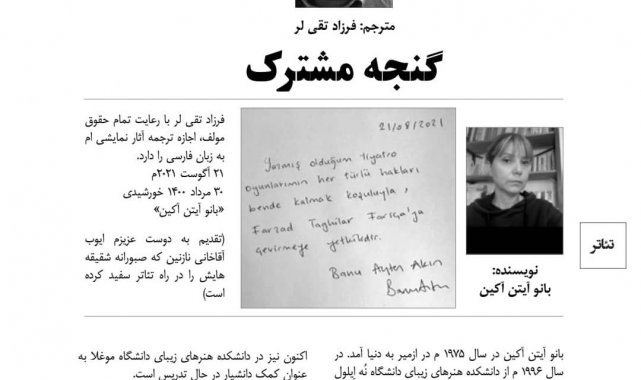 مترجم: فرزاد تقی لر
گنجه مشترک
فرزاد تقی لر با رعایت تمام حقوق
مولف، اجازه ترجمه آثار نمایشی ام
به زبان فارسی را دارد.
۲۱ آگوست ۲۰۲۱م
۳۰ مرداد ۱۴۰۰ خورشیدی
«بانو آیتن آکین»
(تقدیم به دوست عزیزم ایوب
آقاخانی نازنین که صبورانه شقیقه
هایش را در راه تئاتر سفید کرده
است)
21/08/2021
Yazmış olduğum tiyatro
oyunlarımın her türlü hakları
bende kalmak koşuluyla,
Farzad Taghilar Farsça'ya
çevirmeye yetkilidir.
Banu Ayten Akın
نویسنده:
بانو آیتن آکین
تئاتر
بانو آیتن آکین در سال ۱۹۷۵ م در ازمیر به دنیا آمد. در
سال ۱۹۹۶ م از دانشکده هنرهای زیبای دانشگاه نُه ایلول
اکنون نیز در دانشکده هنرهای زیبای دانشگاه موغلا به
عنوان کمک دانشیار در حال تدریس است.